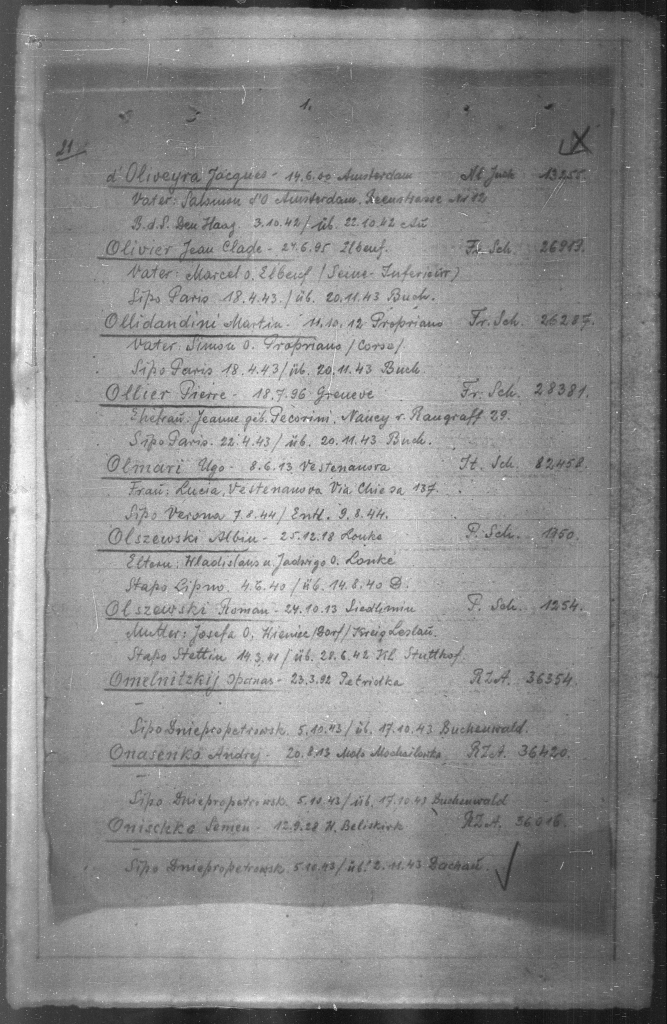 1.
21
d'Oliveyra Jacques - 14.6.00 Amsterdam Nl. Jude 13255.
Vater: Salomon s'O Amsterdam, Nr 12
B.d.S. Den Haag 3.10.42 / üb. 22.10.42 Au
Olivier Jean Clade - 24.6.95 Elbeuf. Fr. Sch. 26913.
Vater: Marcel O. Elbeuf / Seine-Inferieur)
Sipo Paris 18.4.43. / üb. 20.11.43 Buch.
Ollidandini Martin - 11.10.12 Propriano Fr. Sch. 26287.
Vater: Simon O. Propriano / Corse /
Sipo Paris 18.4.43 / üb. 20.11.43 Buch.
Ollier Pierre - 18.7.96 Greneve Fr. Sch. 28381.
Ehefrau: Jeanne geb. Pecorini, Nancy r. Raugraff 29.
Sipo Paris. 22.4.43 / üb. 20.11.43 Buch.
Olmari Ugo - 8.6.13 Vestenanova It. Sch. 82458.
Frau: Lucia, Vestenanova Via Chiesa 137.
Sipo Verona 7.8.44 / Entl. 9.8.44.
Olszewski Albin - 25.12.18 Lonke P. Sch. 1950.
Eltern: Wladislaus u. Jadwiga O. Lonke
Stapo Lipno. 4.6.40 / üb. 14.8.40 D.
Olszewski Roman - 24.10.13 Siedlimin P. Sch. 1254.
Mutter: Josefa O, Wieniec / Dorf / Kreis Leslau.
Stapo Stettin 14.3.41 / üb. 28.6.42 Kl. Stutthof.
Omelnitzkij - 23.3.92 Petridka RZA. 36354.
-
Sipo Dniepropetrowsk. 5.10.43 / üb. 17.10.43 Buchenwald.
Onasenko Andrej - 20.8.13 RZA. 36420.
-
Sipo Dniepropetrowsk. 5.10.43 / üb. 17.10.43 Buchenwald
Onischko Semen - 12.9.28 N. Beliskirk RZA. 36016.
-
Sipo Dniepropetrowsk. 5.10.43 / üb. 2.11.43 Dachau.